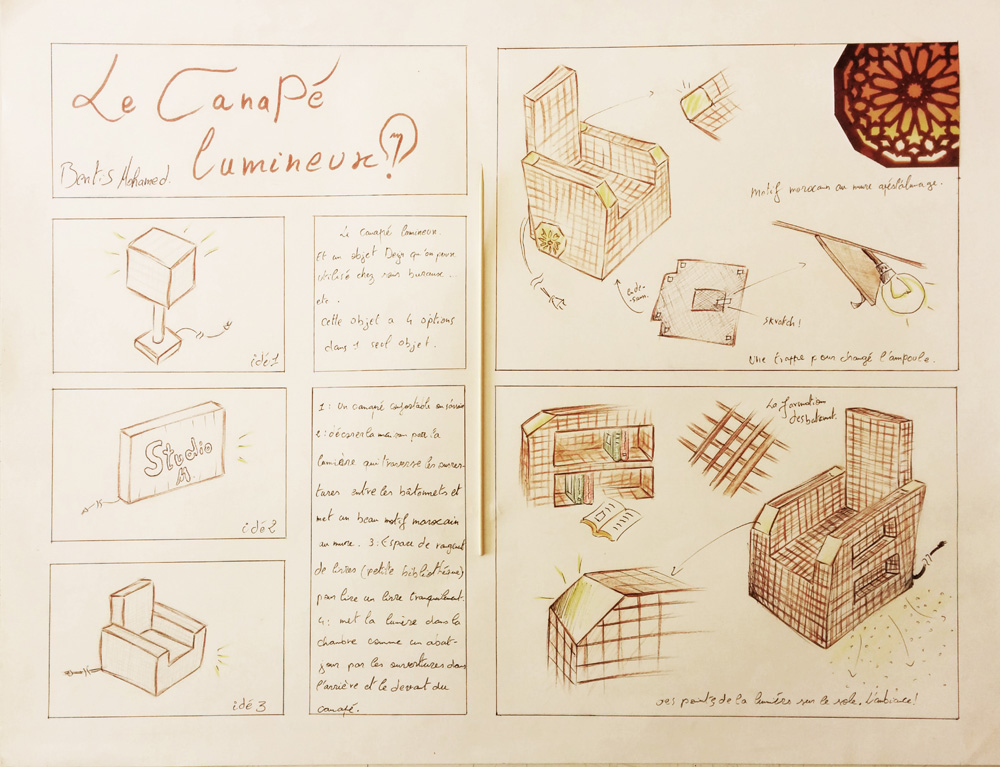 Le Canapé
lumineux
Mohamed.
idé 1
idé 2
Studio
M
idé 3
Le canapé lumineux.
Et un objet Dejr qu'on peux
utilisé chez sans bureaux...
etc.
Cette objet a 4 options
dans 1 seul objet.
1: Un canapé confortable
2: décorer la maison par la
lumière qui traverse les ouver-
tures entre les bâtonnets et
met un beau motif marocain
au mure. 3: Espace de
de livres (petite bibliothèque)
pour lire un livre tranquilement.
4: met la lumière dans la
chambre comme un abat-
jour par les ouvertures dans
l'arrière et le devant du
canapé.
Motif marocain au mure
sam.
skratch!
Une étappe pour changé l'ampoule.
La formation
des
de la lumière sur le sole. L'ambiance!